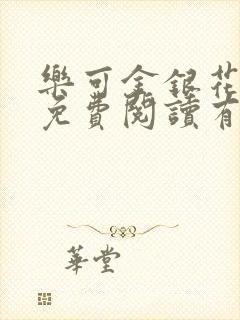 樂可金銀花
免費閱讀有
華堂